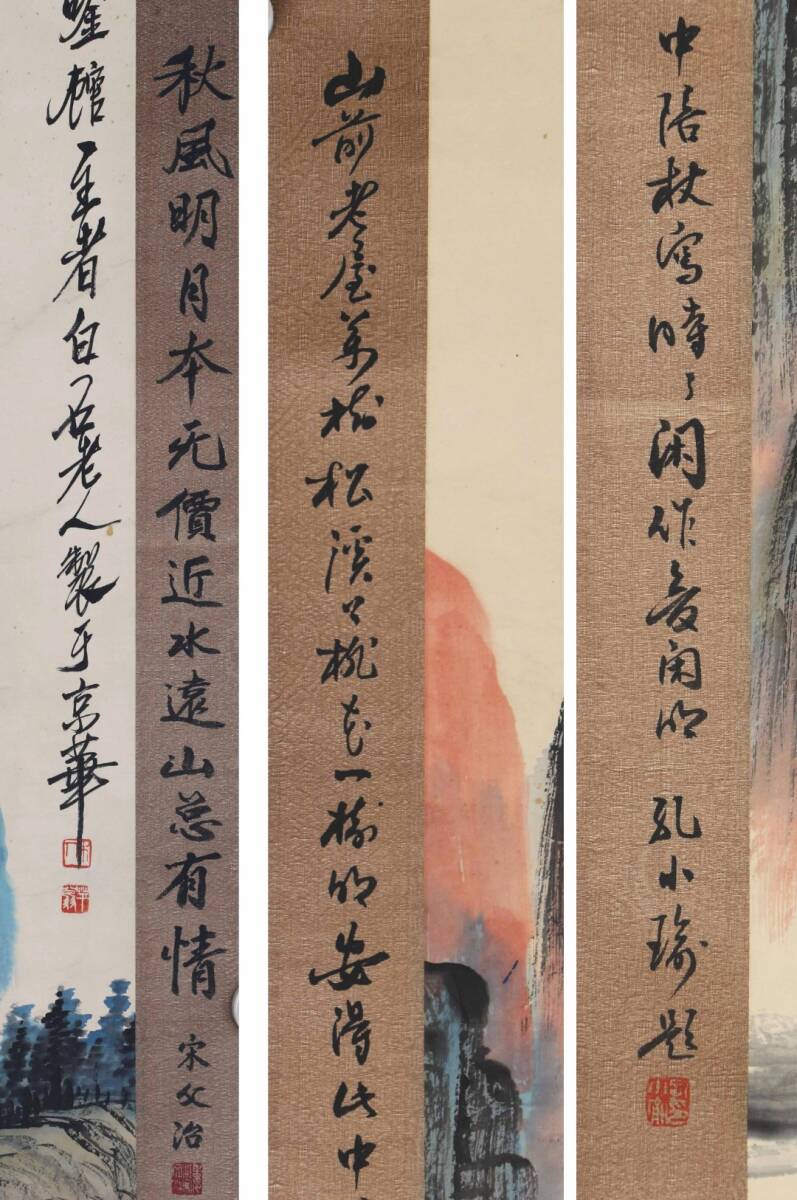 館主者白石老人製于京華
秋風明月本无價近水遠山总有情
宋文治
山前老屋萬樹松溪口桃花一樹明安得此中
中陪杖寫時々闲作爱闲明 孔小瑜題